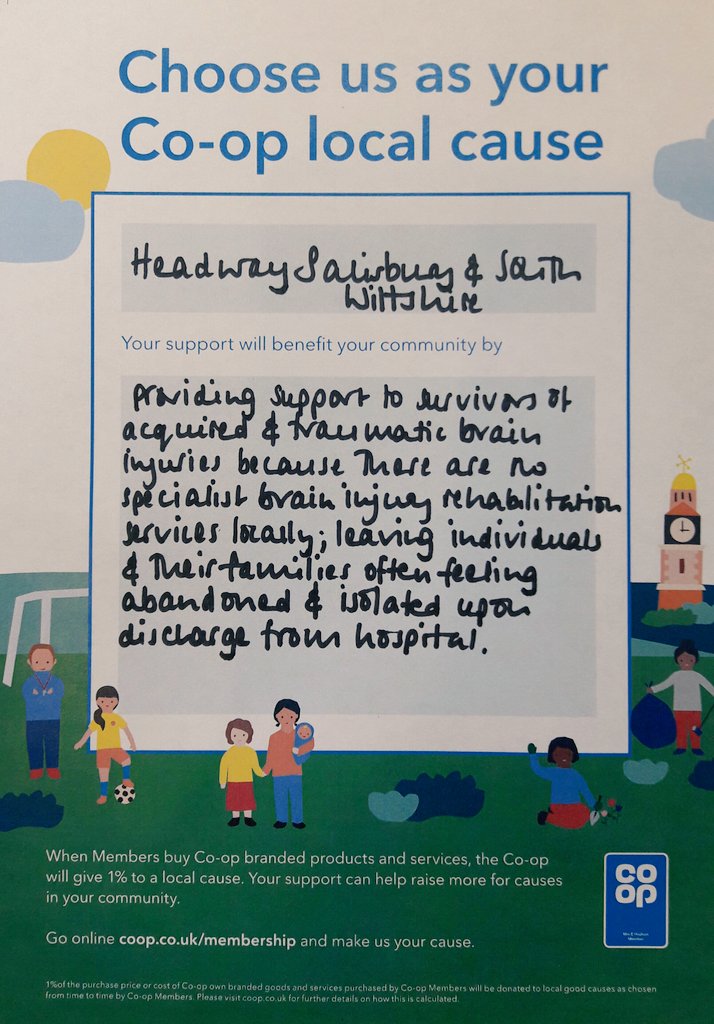 Choose us as your
Co-op local cause
Headway Salisbury & South
Wiltshire
Your support will benefit your community by
providing support to survivors of
acquired & traumatic brain
injuries because there are no
specialist brain injury rehabilitation
services locally; leaving individuals
& their families often feeling
abandoned & isolated upon
discharge from hospital.
When Members buy Co-op branded products and services, the Co-op
will give 1% to a local cause. Your support can help raise more for causes
in your community.
CO
OP
Go online coop.co.uk/membership and make us your cause.
Member
1%of the purchase price or cost of Co-op own branded goods and services purchased by Co-op Members will be donated to local good causes as chosen
from time to time by Co-op Members. Please visit coop.co.uk for further details on how this is calculated.